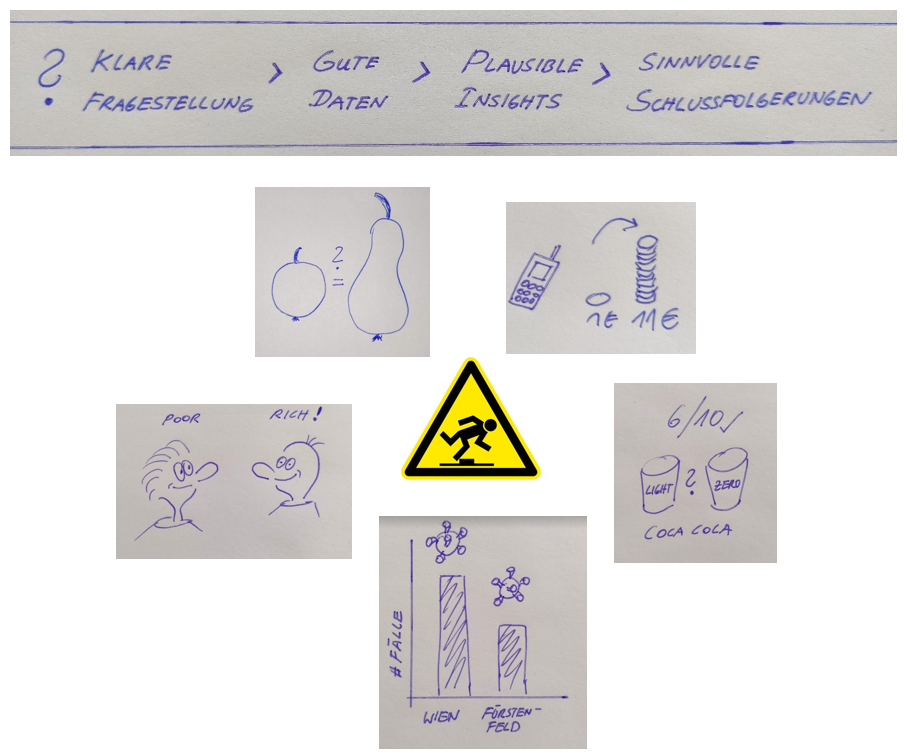 ? KLARE FRAGESTELLUNG > GUTE DATEN > PLAUSIBLE INSIGHTS > SINNVOLLE SCHLUSSFOLGERUNGEN
?
=
1€ 11€
POOR RICH!
6/10 ✓
LIGHT ? ZERO
COCA COLA
# FÄLLE
WIEN FÜRSTEN-
FELD